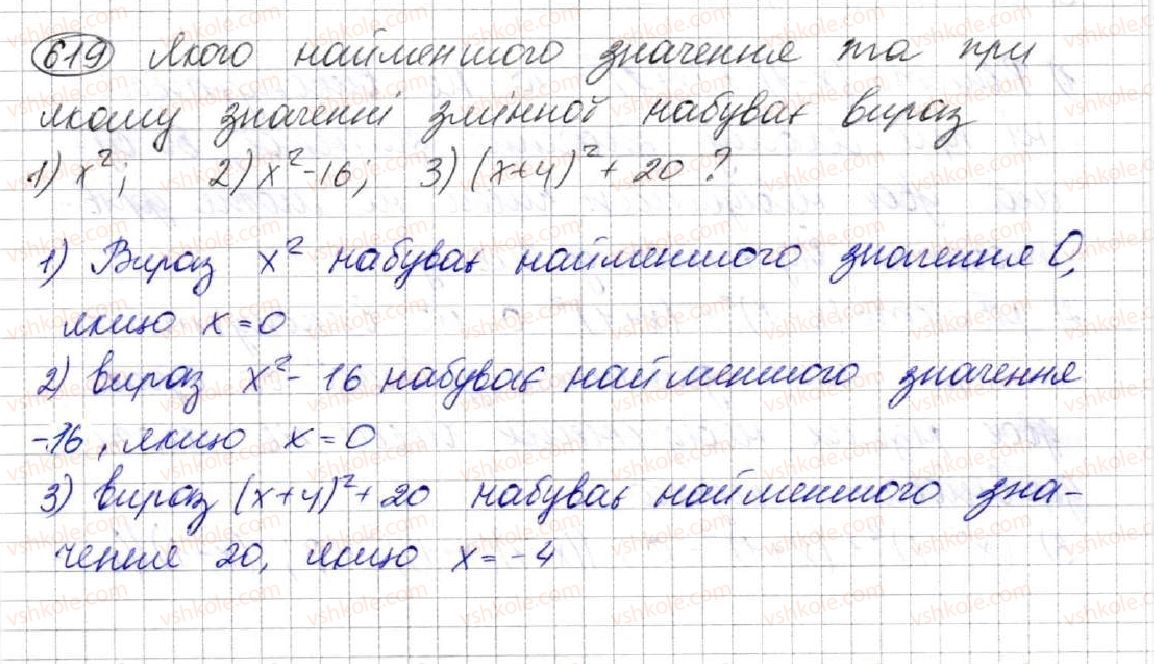 619 Якого найменшого значення та при
якому значенні змінної набуває вираз
1) x²; 2) x²-16; 3) (x+4)² + 20 ?
1) Вираз x² набуває найменшого значення 0,
якщо x=0
2) вираз x²- 16 набуває найменшого значення
-16, якщо x=0
3) вираз (x+4)²+ 20 набуває найменшого зна-
чення 20, якщо x= -4